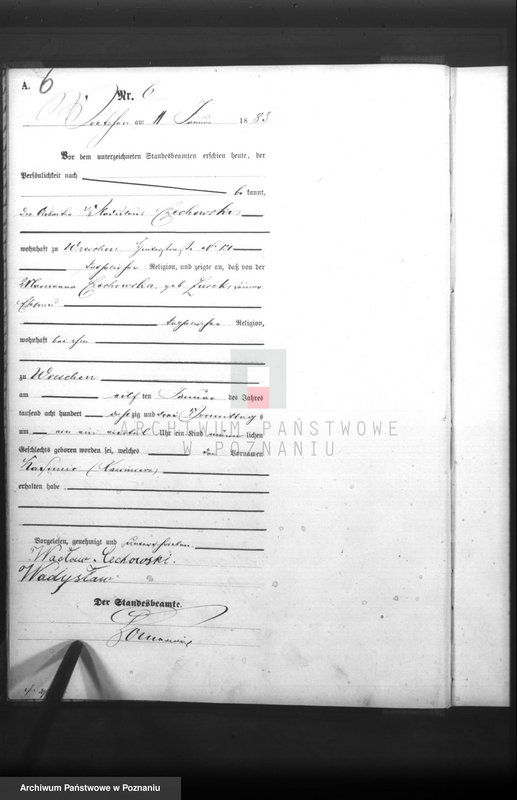 A. 6
Nr. 6
Wreschen am 11 Januar 1883
Vor dem unterzeichneten Standesbeamten erschien heute, der
Persönlichkeit nach
bekannt,
der Arbeiter Wladislaus Czechowski
wohnhaft zu Wreschen, No 121
katholischer Religion, und zeigte an, daß von der
Marianna Czechowska, geb. seiner
Ehefrau
katholischer Religion,
wohnhaft bei ihm
zu Wreschen
am elf ten Januar des Jahres
tausend acht hundert achtzig und drei Vormittags
um ein viertel Uhr ein Kind männlichen
Geschlechts geboren worden sei, welches den Vornamen
Kasimir (Kazimierz)
erhalten habe
Vorgelesen, genehmigt und unterschrieben
Wacław Czechowski.
Wadysław
Der Standesbeamte.
ARCHIWUM PAŃSTWOWE
W POZNANIU
Archiwum Państwowe w Poznaniu